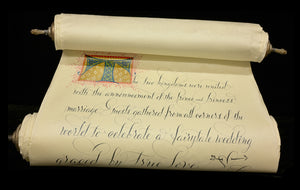 two kingdoms were united
with the announcement of the prince and princess'
marriage. Guests gathered from all corners of the
world to celebrate a fairytale wedding
graced by true love